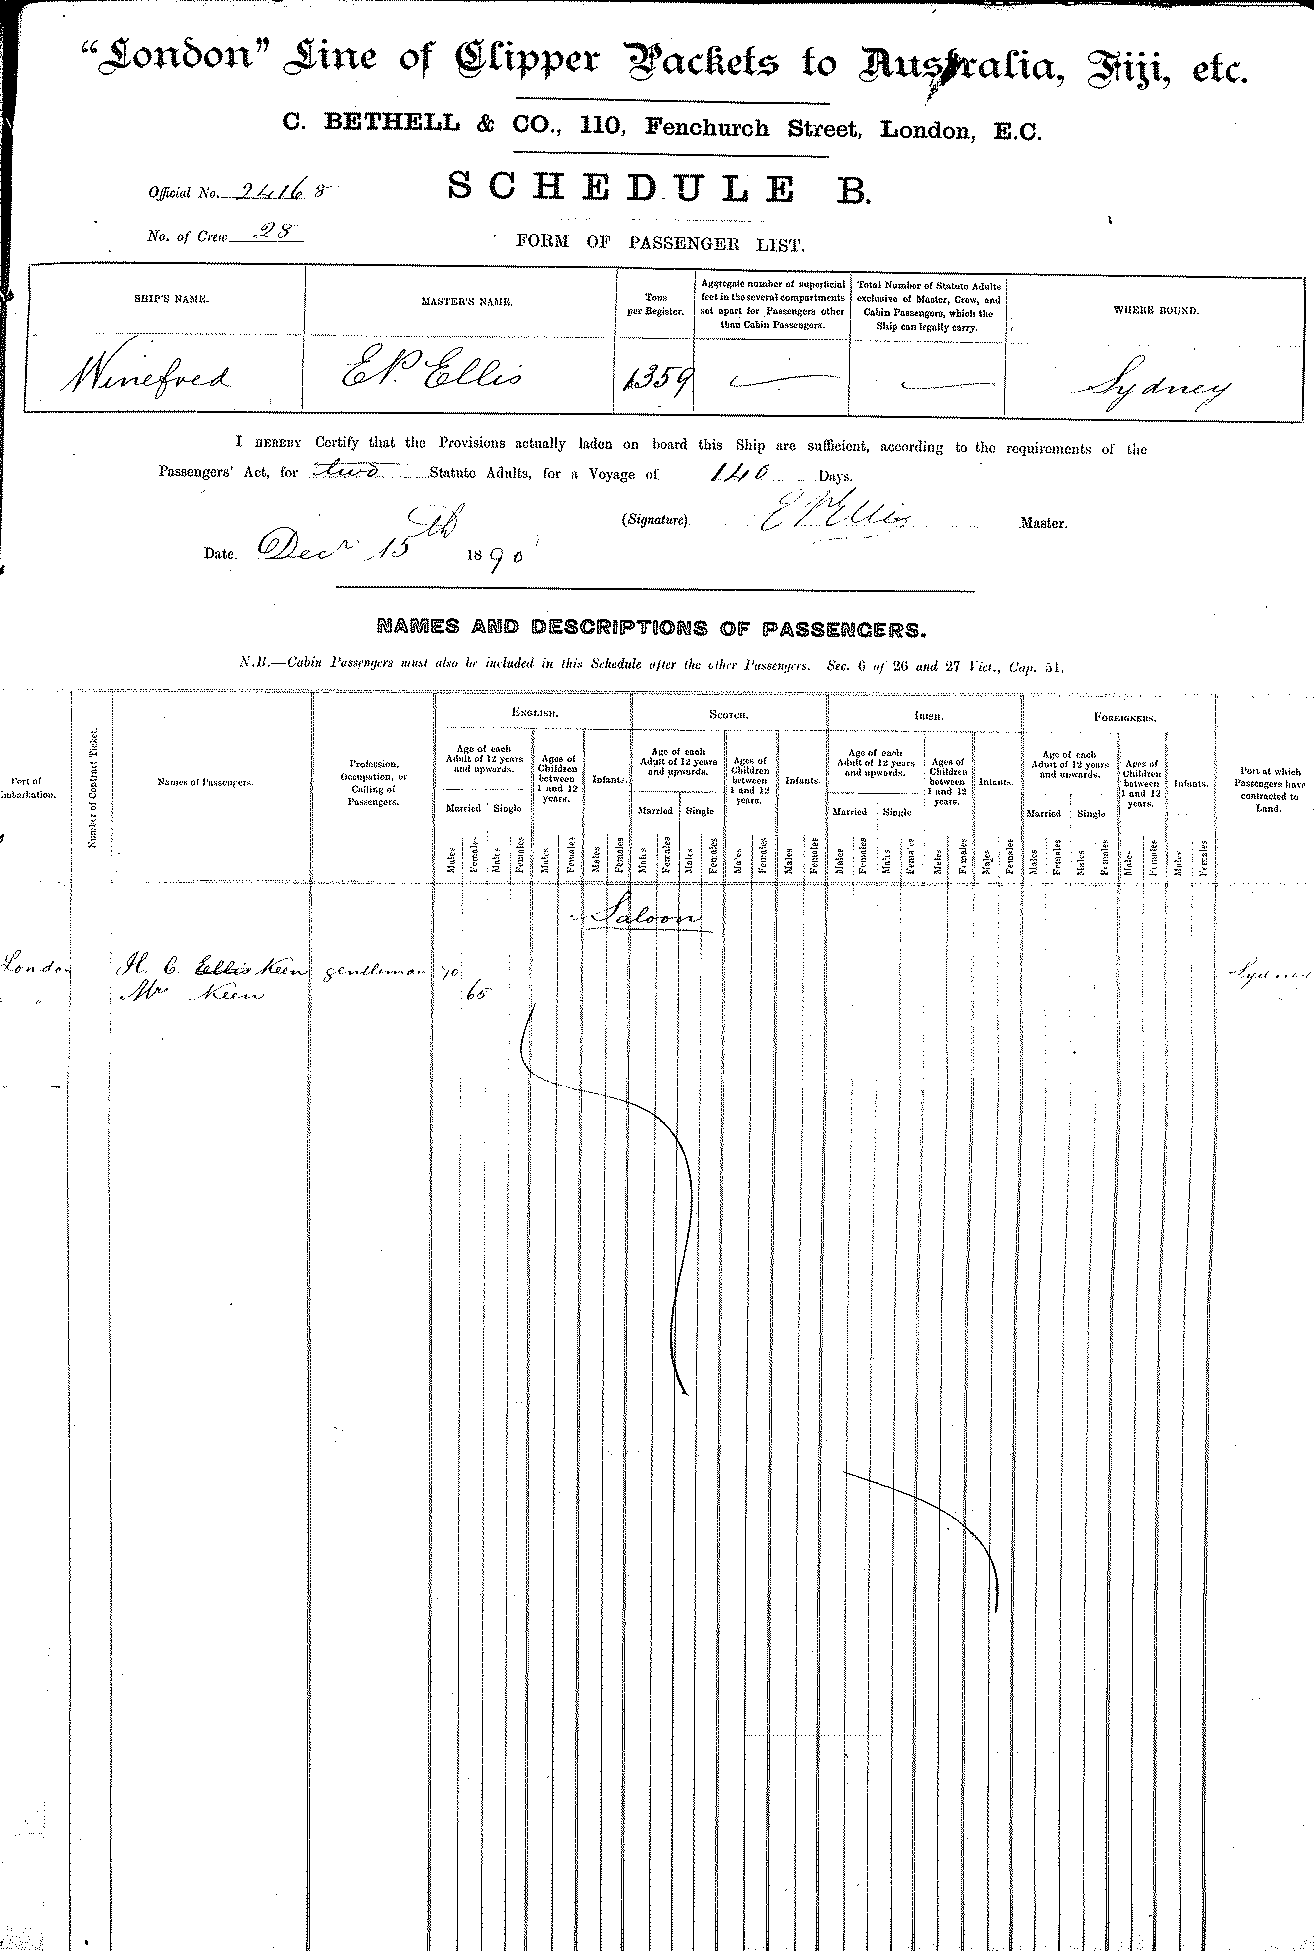 “London” Line of Clipper Packets to Australia, Fiji, etc.
C. BETHELL & CO., 110, Fenchurch Street, London, E.C.
SCHEDULE B.
Official No. 24168
No. of Crew 28
FORM OF PASSENGER LIST.
SHIP'S NAME.
MASTER'S NAME.
Tons per Register.
Aggregate number of superficial feet in the several compartments set apart for Passengers other than Cabin Passengers.
Total Number of Statute Adults exclusive of Master, Crew, and Cabin Passengers, which the Ship can legally carry.
WHERE BOUND.
Winefred E P. Ellis 1359 — — Sydney
I HEREBY Certify that the Provisions actually laden on board this Ship are sufficient, according to the requirements of the
Passengers' Act, for two Statute Adults, for a Voyage of 140 Days.
(Signature) E P Ellis Master.
Date. Decr 15th 1890
NAMES AND DESCRIPTIONS OF PASSENGERS.
N.B.—Cabin Passengers must also be included in this Schedule after the other Passengers. Sec. 6 of 26 and 27 Vict., Cap. 51.
Port of Embarkation.
Number of Contract Ticket.
Names of Passengers.
Profession, Occupation, or Calling of Passengers.
ENGLISH. SCOTCH. IRISH. FOREIGNERS.
Age of each Adult of 12 years and upwards. Ages of Children between 1 and 12 years. Infants. Age of each Adult of 12 years and upwards. Ages of Children between 1 and 12 years. Infants. Age of each Adult of 12 years and upwards. Ages of Children between 1 and 12 years. Infants. Age of each Adult of 12 years and upwards. Ages of Children between 1 and 12 years. Infants.
Married Single Married Single Married Single Married Single
Males Females Males Females Males Females Males Females Males Females Males Females Males Females Males Females Males Females Males Females Males Females Males Females Males Females Males Females Males Females Males Females
Port at which Passengers have contracted to Land.
Saloon
London H. C. Ellis Keen gentleman 70 Sydney
" Mrs Keen 65